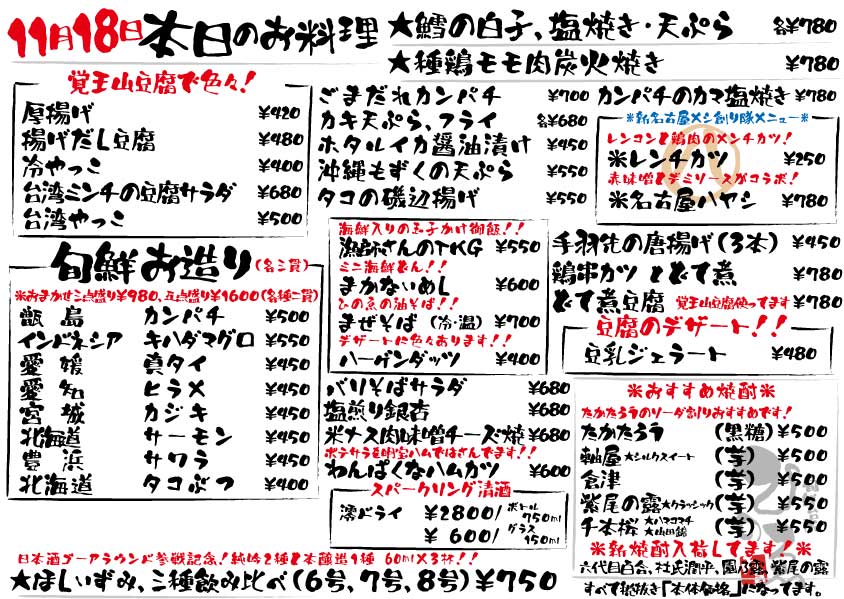 11月18日本日のお料理
★鱈の白子、塩焼き・天ぷら 各¥780
★種鶏モモ肉炭火焼き ¥780
覚王山豆腐で色々！
厚揚げ ¥420
揚げだし豆腐 ¥480
冷やっこ ¥400
台湾ミンチの豆腐サラダ ¥680
台湾やっこ ¥500
ごまだれカンパチ ¥700
カキ天ぷら、フライ 各¥680
ホタルイカ醤油漬け ¥450
沖縄もずくの天ぷら ¥550
タコの磯辺揚げ ¥550
カンパチのカマ塩焼き ¥780
※新名古屋メシ創り隊メニュー※
レンコンと鶏肉のメンチカツ！
※レンチカツ ¥250
赤味噌とデミソースがコラボ！
※名古屋ハヤシ ¥780
旬鮮お造り(各三貫)
※おまかせ三点盛り¥980、五点盛り¥1600(各種二貫)
甑島 カンパチ ¥500
インドネシア キハダマグロ ¥550
愛媛 真タイ ¥450
愛知 ヒラメ ¥450
宮城 カジキ ¥450
北海道 サーモン ¥450
豊浜 サワラ ¥450
北海道 タコぶつ ¥400
海鮮入りの玉子かけ御飯！！
漁師さんのTKG ¥550
ミニ海鮮どん！！
まかないめし ¥600
ひの魚の油そば！！
まぜそば (冷・温) ¥700
デザートに色々あります！！
ハーゲンダッツ ¥400
手羽先の唐揚げ(3本) ¥450
鶏串カツ とどて煮 ¥780
どて煮豆腐 覚王山豆腐使ってます ¥780
豆腐のデザート！！
豆乳ジェラート ¥480
バリそばサラダ ¥680
塩煎り銀杏 ¥680
米ナス肉味噌チーズ焼 ¥680
ポテサラを明宝ハムではさんでます！！
わんぱくなハムカツ ¥600
スパークリング清酒
澪ドライ ¥2800/ボトル750ml
¥600/グラス150ml
※おすすめ焼酎※
たかたろうのソーダ割りおすすめです！
たかたろう (黒糖) ¥500
軸屋★シルクスイート (芋) ¥500
倉津 (芋) ¥500
紫尾の露★クラッシック (芋) ¥550
千本桜★ハマコマチ ★山田錦 (芋) ¥550
※新焼酎入荷してます！※
六代目百合、杜氏潤平、園乃露、紫尾の露
すべて税抜き「本体価格」になってます。
日本酒ゴーアラウンド参戦記念！純吟2種と本醸造1種 60ml×3杯！！
★ほしいずみ、三種飲み比べ(6号、7号、8号)¥750